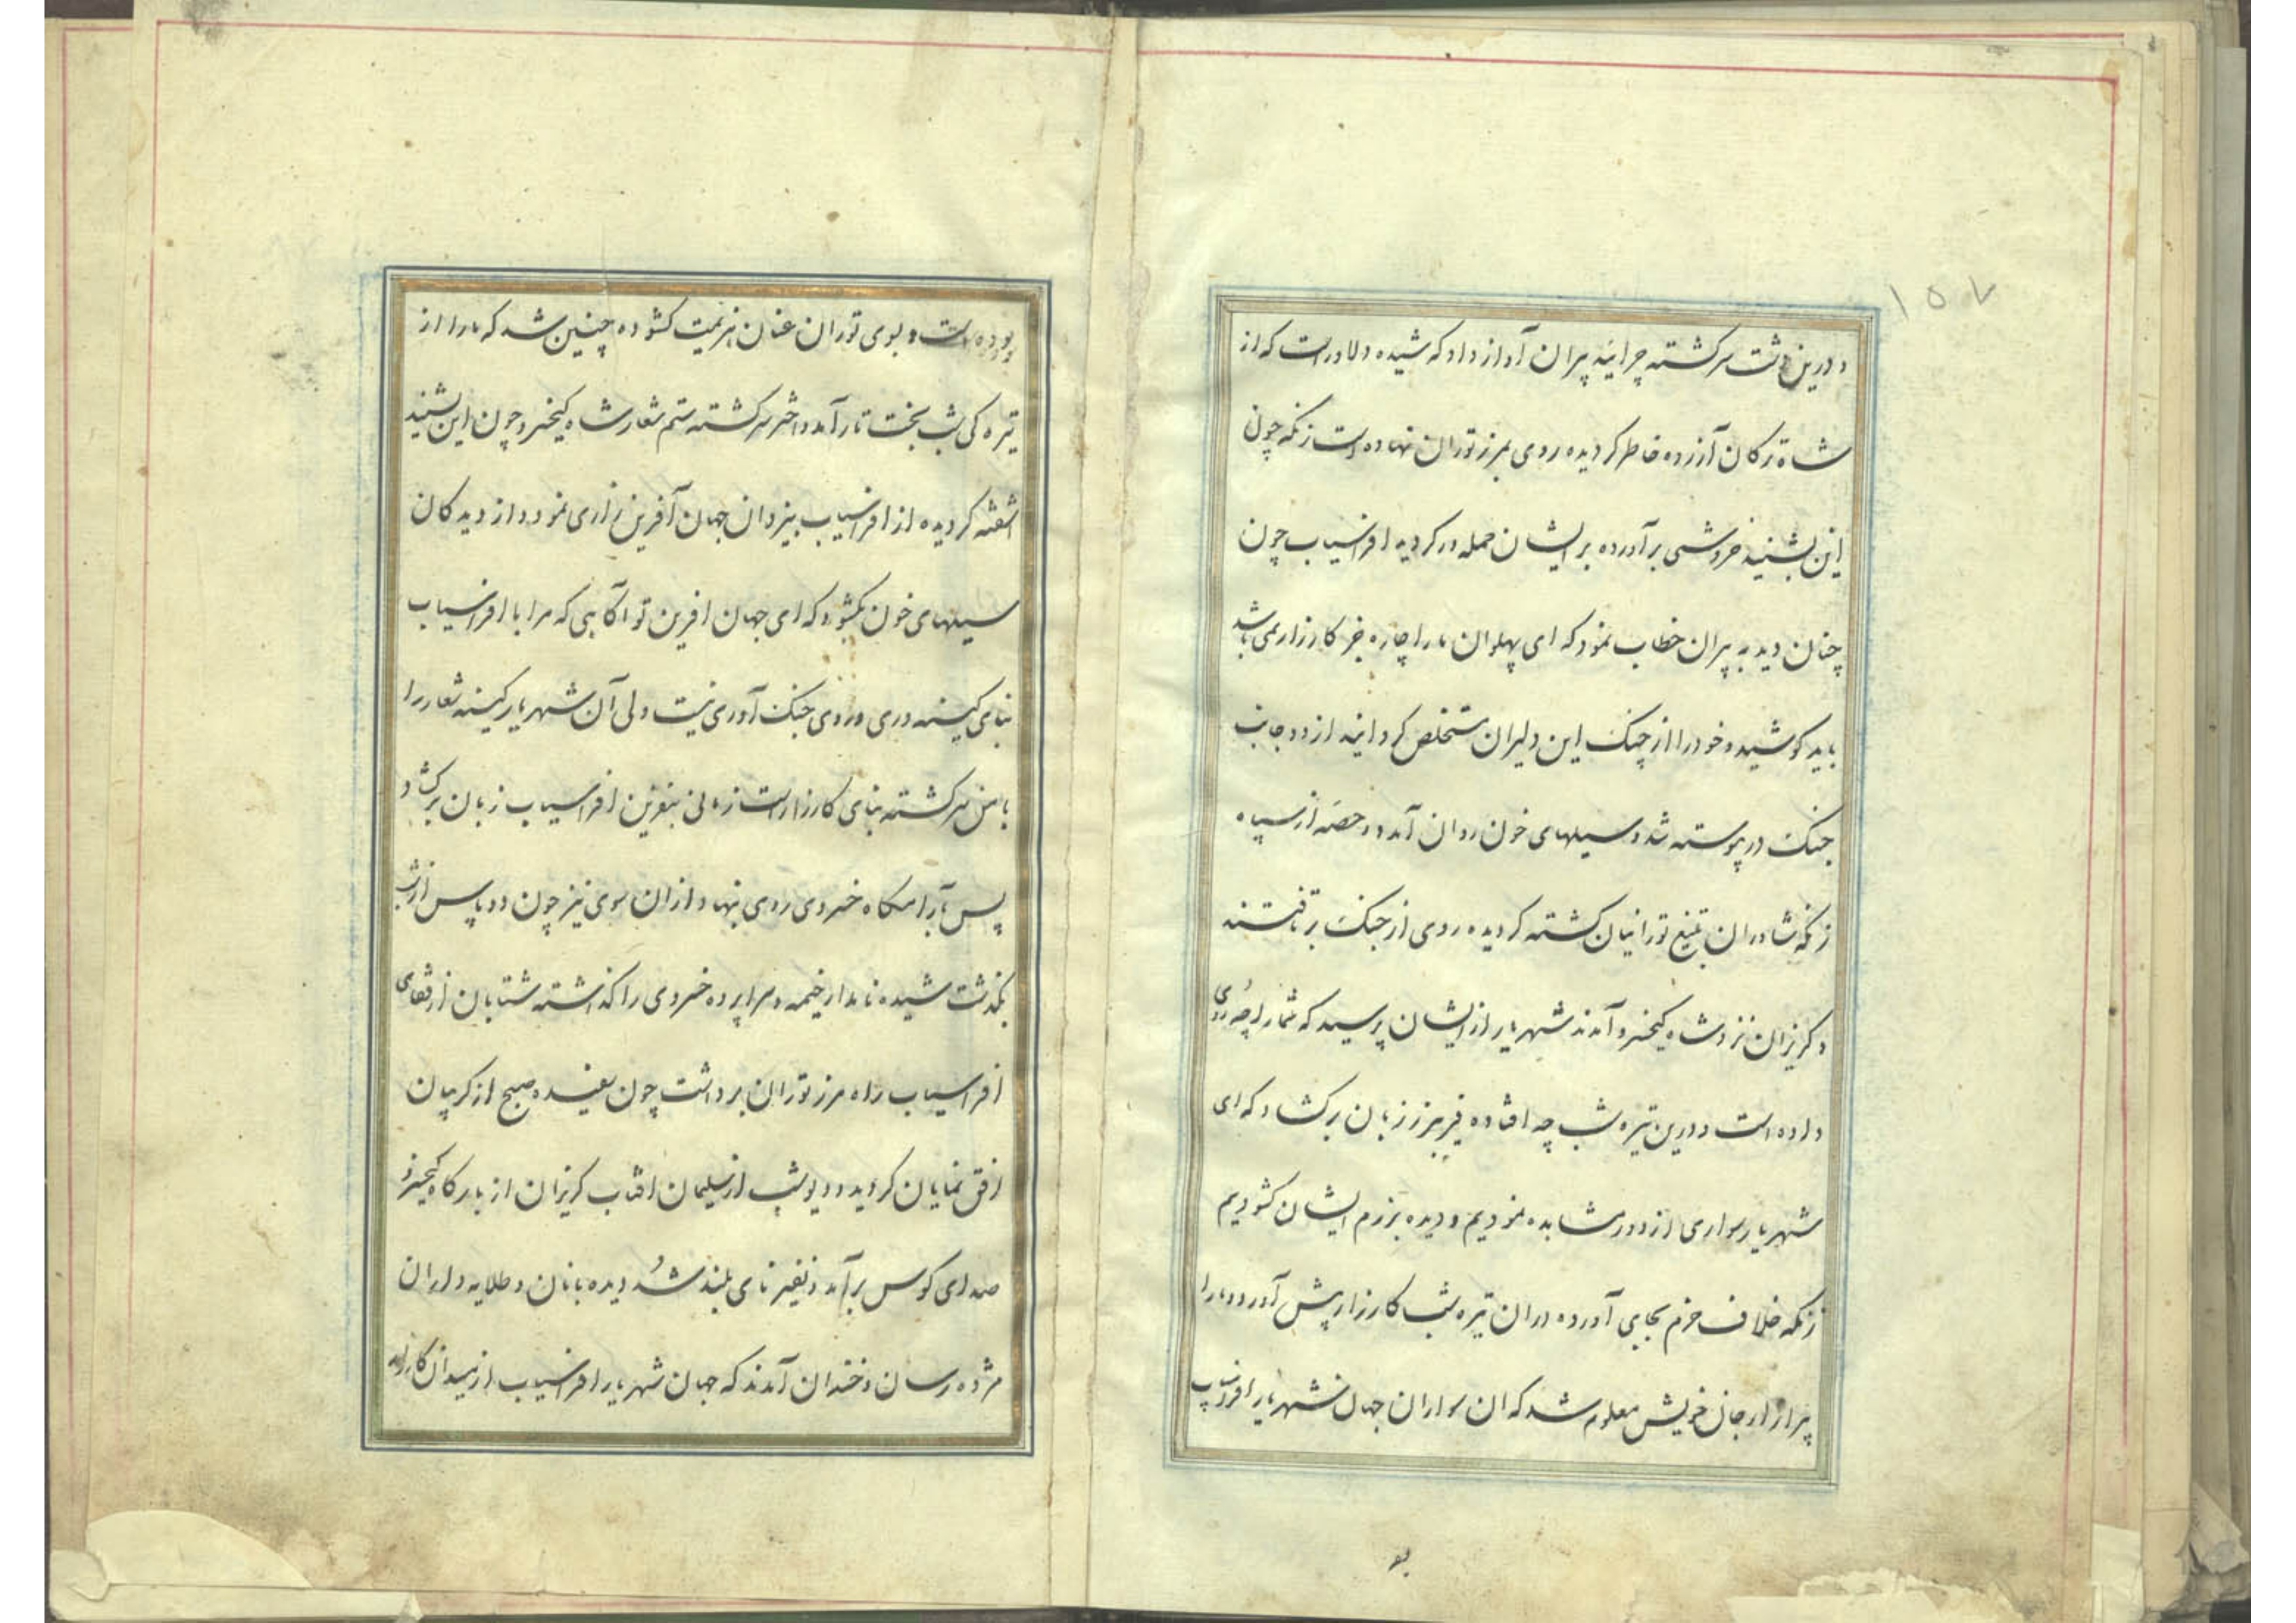 ۱۵۷
و درین دشت سرکشته چرائید پیران آواز داد که شیده دلاور است که از
شاه ترکان آزرده خاطر کردیده روی بمرز توران نهاده است زنکه چون
این بشنید خروشی برآورده بر ایشان حمله ور کردید افراسیاب چون
چنان دید به پیران خطاب نمود که ای پهلوان ما را چاره جز کارزار نمی باشد
باید کوشید و خود را از چنک این دلیران مستخلص کردانید از دو جانب
جنک در پیوسته شد و سیلهای خون روان آمد دو حصه از سپاه
زنکه شاوران بتیغ تورانیان کشته کردیده روی از جنک برتافتند
و کریزان نزد شاه کیخسرو آمدند شهریار از ایشان پرسید که شما را چه روی
داده است و درین تیره شب چه افتاده فریبرز زبان برکشاد که ای
شهریار سواری از دور مشاهده نمودیم و دیده برزم ایشان کشودیم
زنکه خلاف حزم بجای آورده دران تیره شب کارزار پیش آورد و ما را
پس از از جان خویش معلوم شد که ان سواران جهان شهریار افراسیاب
بو
بوده است و بسوی توران عنان هزیمت کشوده چنین شد که ما را از
تیره کی شب بخت تار آمد و اختر سرکشته ستم شعار شاه کیخسرو چون این بشنید
اشفته کردیده از افراسیاب بیزدان جهان آفرین زاری نمود و از دیدکان
سیلهای خون بکشود که ای جهان افرین تو آکاهی که مرا با افراسیاب
بنای کینه وری و روی جنک آوری نیست ولی آن شهریار کینه شعار را
با من سرکشته بنای کارزار است زمانی بنفرین افراسیاب زبان برکشاد
پس بآرامکاه خسروی روی نهاد و ازان سوی نیز چون دو پاس از شب
بکذشت شیده نامدار خیمه و سراپرده خسروی را کذاشته شتابان از قفای
افراسیاب راه مرز توران برداشت چون سفیده صبح از کریبان
افق نمایان کردید و دیو شب از سلیمان افتاب کریزان از بارکاه کیخسرو
صدای کوس برآمد و نفیر نای بلند شد دیده بانان و طلایه داران
مژده رسان و خندان آمدند که جهان شهریار افراسیاب از میدان کارزار